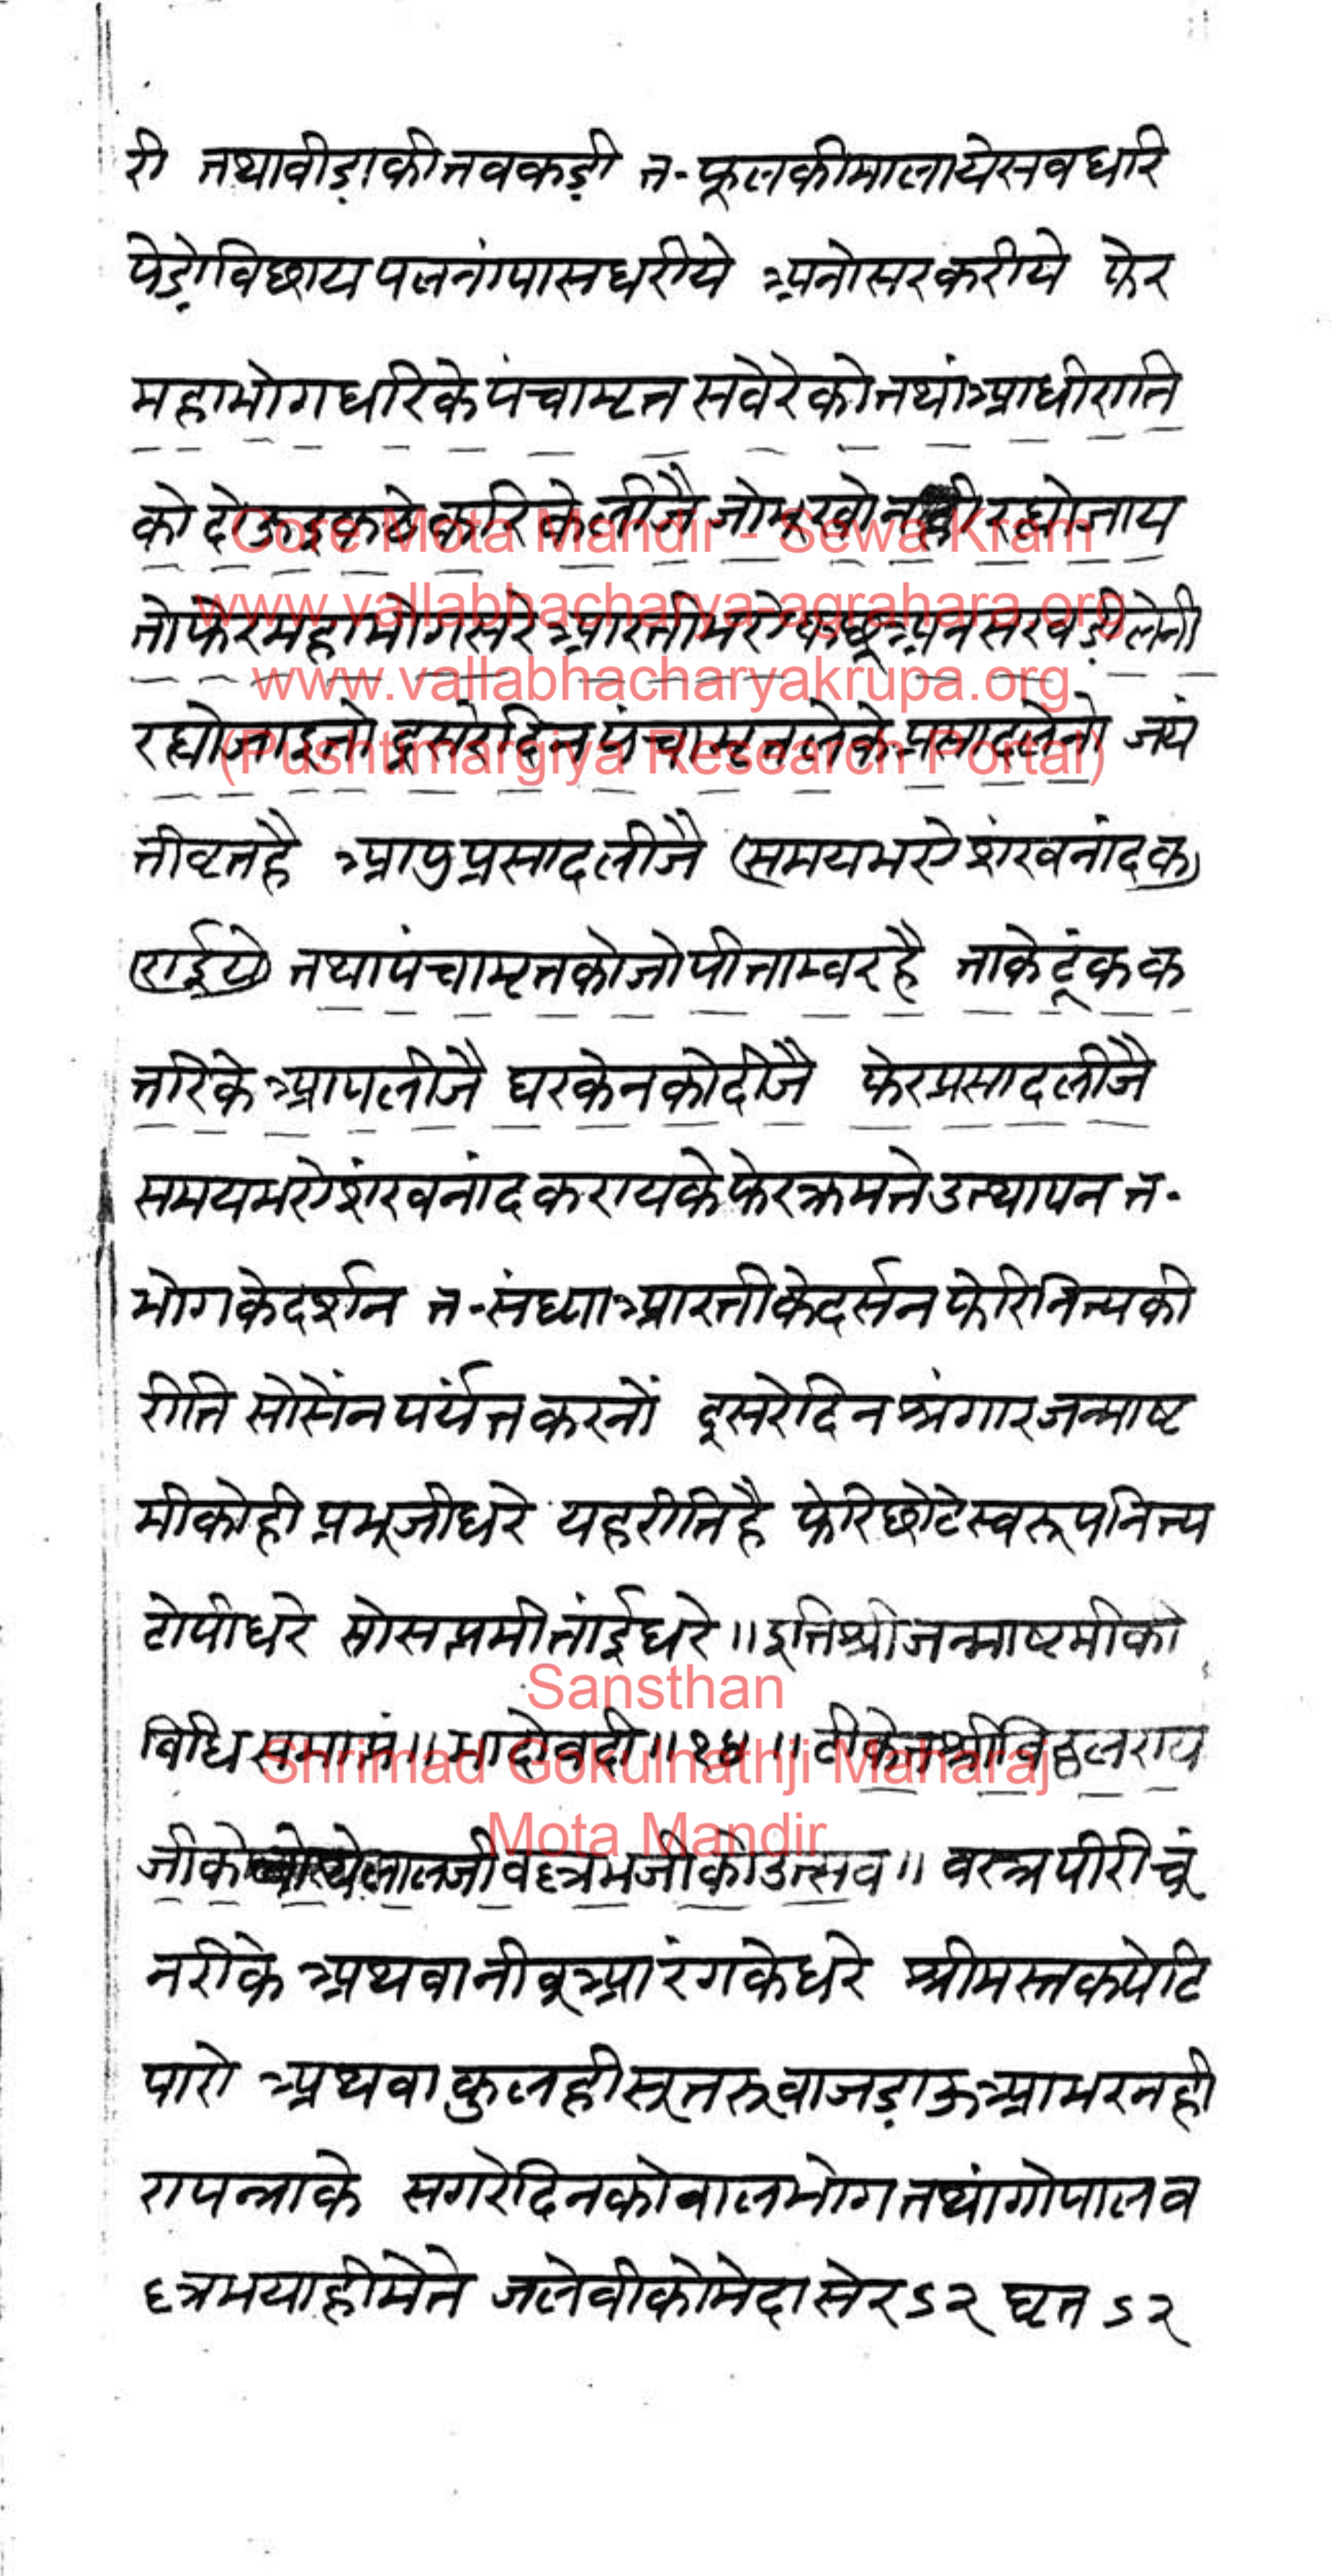 री तथा वीड़ा की तवकड़ी त- फूल की माला ये सव धरि
पेड़ो विछाय पलनां पास धरीये अनोसर करीये फेर
महाभोग धरि के पंचामृत सवेरे को तथां आधी राति
को दोऊ इकठे करि के लीजै जो भूखो नही रह्यो जाय
तो फेर महाभोग सरे आरती भये पाछे अनसखड़ी लेनी
रह्यो जाइ तो दूसरे दिन पंचामृत लेके प्रसाद लेनो जयं
ती वृत है आपु प्रसाद लीजै समय भये शंखनांद क
राईये तथा पंचामृत को जो पीताम्वर है ताके टूंक क
तरि के आप लीजै घर केन को दीजै फेर प्रसाद लीजै
समय भये शंखनांद कराय के फेर क्रम ते उत्थापन त-
भोग के दर्शन त- संध्या आरती के दर्सन फेरि नित्य की
रीति सो सेंन पर्यंत करनों दूसरे दिन श्रंगार जन्माष्ट
मी को ही प्रभूजी धरे यह रीति है फेरि छोटे स्वरूप नित्य
टोपी धरे सो सप्तमी तांई धरे ॥ इति श्री जन्माष्टमी को
विधि समाप्तं ॥ भादो वदी ॥ टीकेत श्री विठ्ठलराय
जी के लालजी वल्लभजी को उत्सव ॥ वस्त्र पीरी चूं
नरी के अथवा नीवूआ रंग के धरे श्रीमस्तक पे टि
पारो अथवा कुलही सूतरू वा जड़ाऊ आभरन ही
रा पन्ना के सगरे दिन को वालभोग तथां गोपालव
ल्लभ याही मे ते जलेवी को मेदा सेर ऽ२ घृत ऽ२
Core Mota Mandir - Sewa Kram
www.vallabhacharya-agrahara.org
www.vallabhacharyakrupa.org
(Pushtimargiya Research Portal)
Sansthan
Shrimad Gokulnathji Maharaj
Mota Mandir